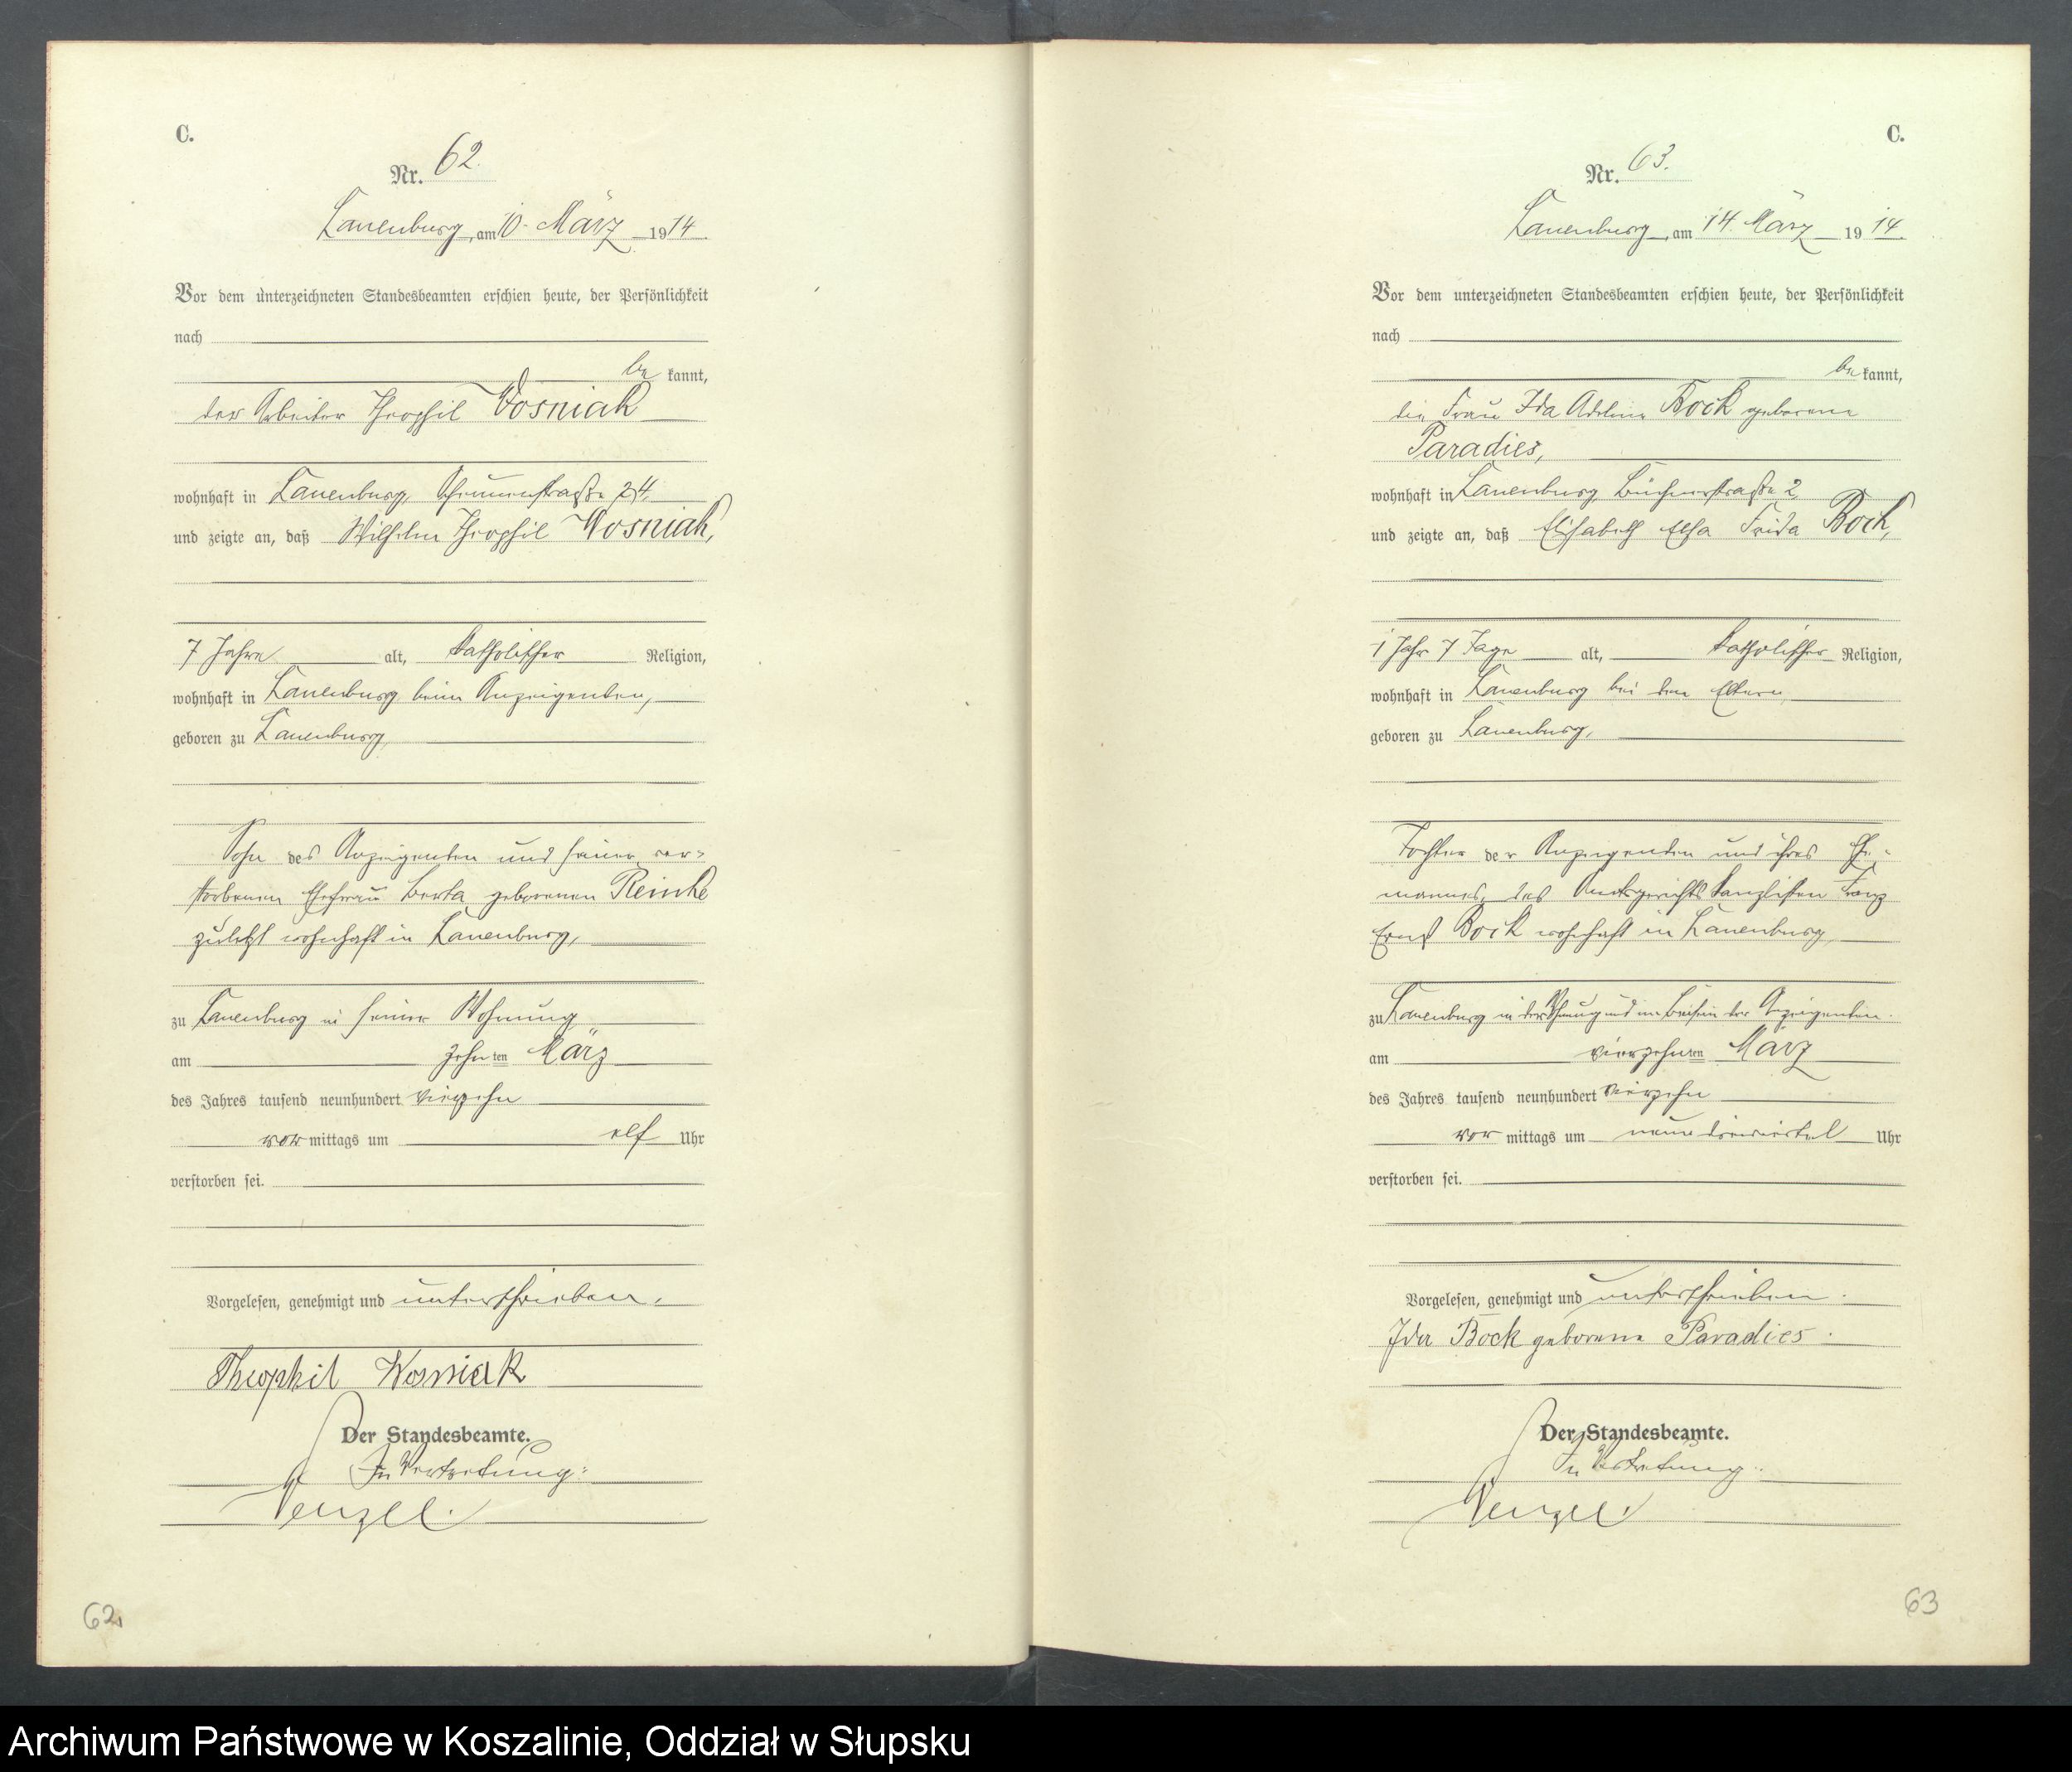 C.
Nr. 62.
Lauenburg, am 10. März 1914.
Vor dem unterzeichneten Standesbeamten erschien heute, der Persönlichkeit
nach
be kannt,
der Arbeiter Theophil Wosniak
wohnhaft in Lauenburg, Scheunenstraße 24,
und zeigte an, daß Wilhelm Theophil Wosniak,
7 Jahre alt, katholischer Religion,
wohnhaft in Lauenburg beim Anzeigenden,
geboren zu Lauenburg,
Sohn des Anzeigenden und seiner ver-
storbenen Ehefrau Berta geborenen Reinke
zuletzt wohnhaft in Lauenburg,
zu Lauenburg in seiner Wohnung
am zehnten März
des Jahres tausend neunhundert vierzehn
vor mittags um elf Uhr
verstorben sei.
Vorgelesen, genehmigt und unterschrieben.
Theophil Wosniak
Der Standesbeamte.
In Vertretung:
Wenzel.
62
C.
Nr. 63.
Lauenburg, am 14. März 1914.
Vor dem unterzeichneten Standesbeamten erschien heute, der Persönlichkeit
nach
be kannt,
die Frau Ida Adeline Bock geborene
Paradies,
wohnhaft in Lauenburg, 2,
und zeigte an, daß Elisabeth Elsa Frida Bock,
1 Jahr 7 Tage alt, katholischer Religion,
wohnhaft in Lauenburg bei den Eltern,
geboren zu Lauenburg,
Tochter der Anzeigenden und ihres Ehe-
mannes, des Amtsgerichts Kanzlisten Franz
Ernst Bock wohnhaft in Lauenburg,
zu Lauenburg in der Wohnung und im Beisein der Anzeigenden.
am vierzehnten März
des Jahres tausend neunhundert vierzehn
vor mittags um neundreiviertel Uhr
verstorben sei.
Vorgelesen, genehmigt und unterschrieben.
Ida Bock geborene Paradies.
Der Standesbeamte.
In Vertretung:
Wenzel.
63
Archiwum Państwowe w Koszalinie, Oddział w Słupsku